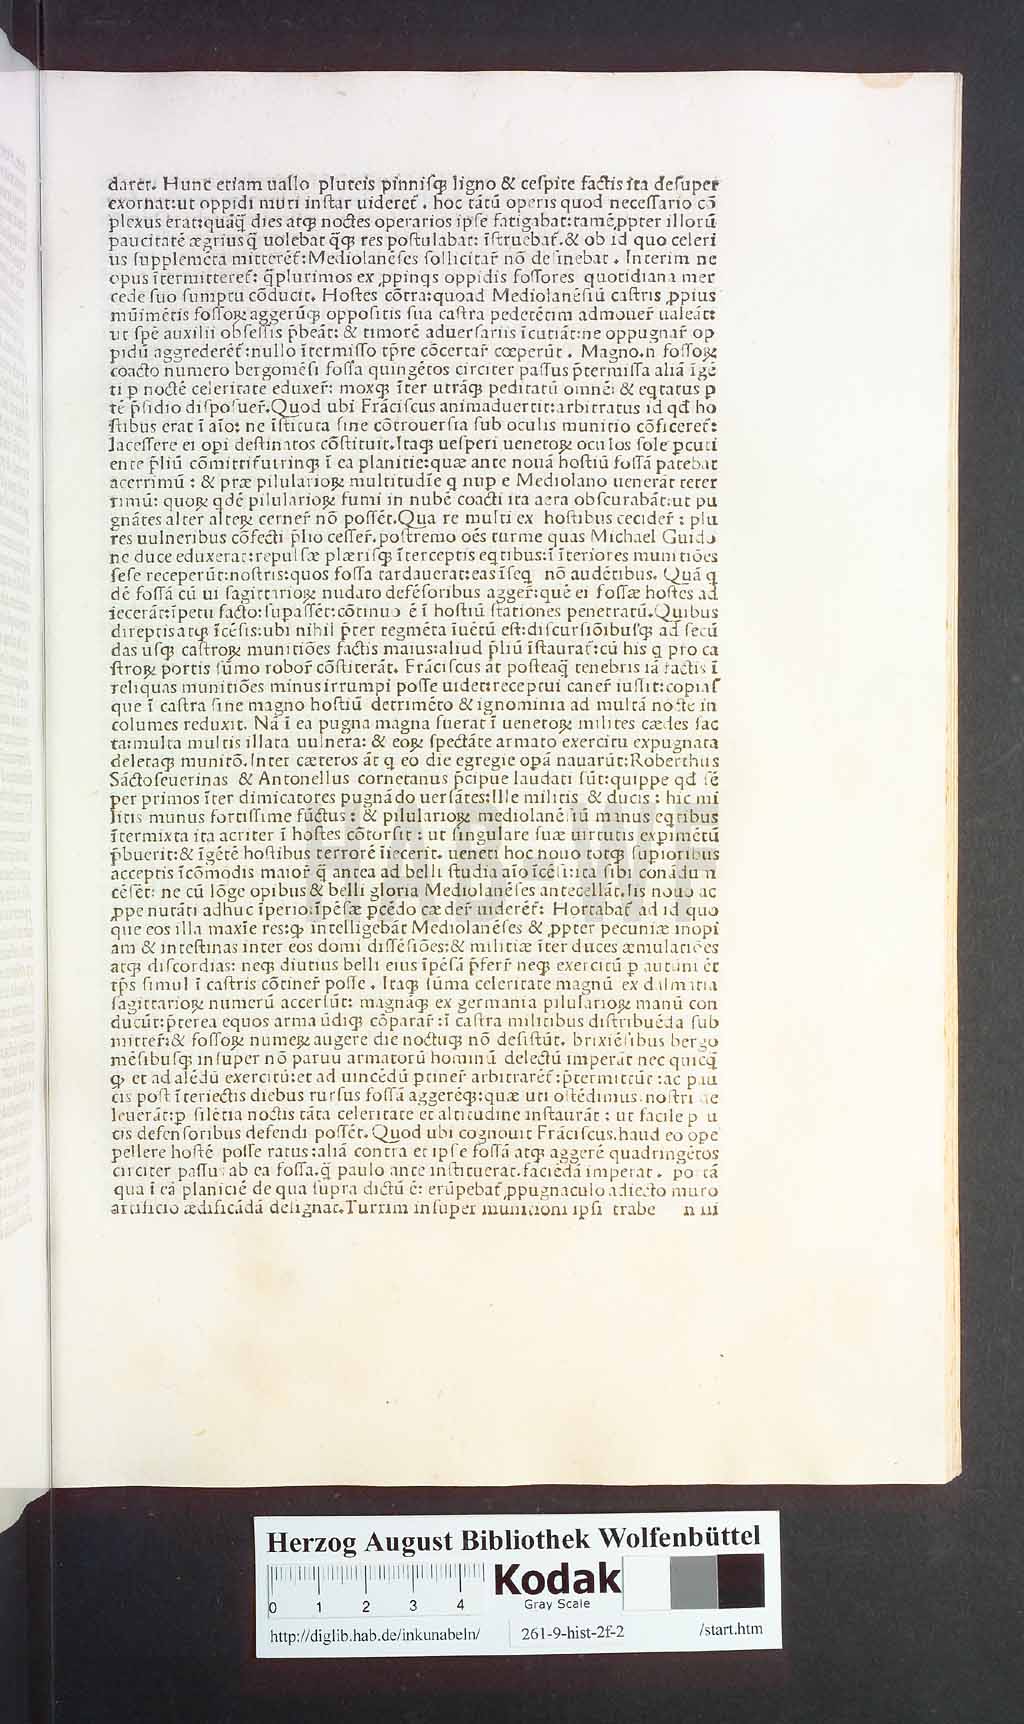 darēt. Hunc etiam uallo pluteis pinnisqꝫ ligno & cespite factis ita desuper
exornat:ut oppidi muri instar uideret᷑. hoc tātū operis quod necessario cō
plexus erat:quāq̄ dies atqꝫ noctes operarios ipse fatigabat:tamē ꝓpter illorū
paucitatē ægrius q̄ uolebat q̄qꝫ res postulabat: īstruebat᷑.& ob id quo celeri
us supplemēta mitterēt᷑:Mediolanēses sollicitar̄ nō desinebat . Interim ne
opus ītermitteret᷑: q̄plurimos ex ꝓpinqs oppidis fossores quotidiana mer
cede suo sumptu cōducit. Hostes cōtra:quoad Mediolanēsiū castris ꝓpius
mūimētis fossoꝝ aggerūqꝫ oppositis sua castra pedetētim admouer̄ ualeāt:
ut spē auxilii obsessis p̄beāt: & timorē aduersariis īcutiāt:ne oppugnar̄ op
pidū aggrederēt᷑:nullo ītermisso tp̄re cōcertar̄ cœperūt . Magno.n fossoꝝ
coacto numero bergomēsi fossa quingētos circiter passus p̄termissa aliā īgē
ti ꝑ noctē celeritate eduxer̄: moxqꝫ īter utrāqꝫ peditatū omnē: & eqtatus ꝑ
tē p̄sidio disposuer̄.Quod ubi Frāciscus animaduertit:arbitratus id qd̄ ho
stibus erat ī aīo: ne īstituta sine cōtrouersia sub oculis munitio cōficeret᷑:
lacessere ei opi destinatos cōstituit.Itaqꝫ uesperi uenetoꝝ oculos sole ꝑcuti
ente p̄liū cōmittit᷑ utrinqꝫ ī ea planitie:quæ ante nouā hostiū fossā patebat
acerrimū : & præ pilularioꝝ multitudīe q nup e Mediolano uenerāt teter
rimū: quoꝝ qdē pilularioꝝ fumi in nubē coacti ita aera obscurabāt:ut pu
gnātes alter alteꝝ cerner̄ nō possēt.Qua re multi ex hostibus cecider̄ : plu
res uulneribus cōfecti p̄lio cesser̄.postremo oēs turme quas Michael Guido
ne duce eduxerat:repulsæ plærisqꝫ īterceptis eqtibus:ī īteriores munitiōes
sese receperūt:nostris:quos fossa tardauerat:eas īseq nō audētibus. Quā q
dē fossā cū ui sagittarioꝝ nudato defēsoribus agger̄:quē ei fossæ hostes ad
iecerāt:īpetu facto:supassēt:cōtinuo ē ī hostiū stationes penetratū.Quibus
direptis atqꝫ īcēsis:ubi nihil p̄ter tegmēta īuētū est:discursiōibusqꝫ ad secū
das usqꝫ castroꝝ munitiōes factis maius:aliud p̄liū īstaurat᷑:cū his q pro ca
stroꝝ portis sūmo robor̄ cōstiterāt. Frāciscus āt posteaq̄ tenebris iā factis ī
reliquas munitiōes minus irrumpi posse uidet:receptui caner̄ iussit:copias
que ī castra sine magno hostiū detrimēto & ignominia ad multā nocte in
columes reduxit. Nā ī ea pugna magna fuerat ī uenetoꝝ milites cædes fac
ta:multa multis illata uulnera: & eoꝝ spectāte armato exercitu expugnata
deletaqꝫ munitō.Inter cæteros āt q eo die egregie opā nauarūt:Roberthus
Sāctoseuerinas & Antonellus cornetanus p̄cipue laudati sūt:quippe qd̄ sē
per primos īter dimicatores pugnādo uersātes:Ille militis & ducis : hic mi
litis munus fortissime fūctus : & pilularioꝝ mediolanēsiū manus eqtibus
ītermixta ita acriter ī hostes cōtorsit : ut singulare suæ uirtutis expimētū
p̄buerit:& īgētē hostibus terrorē īiecerit. ueneti hoc nouo totqꝫ supioribus
acceptis īcōmodis maior̄ q̄ antea ad belli studia aīo īcēsi:ita sibi conādum
cēsēt: ne cū lōge opibus & belli gloria Mediolanēses antecellāt.Iis nouo ac
ꝓpe nutāti adhuc īperio:īpēsæ p̄cēdo cæder̄ uiderēt᷑: Hortabat᷑ ad id quo
que eos illa maxīe res:qꝙ intelligebāt Mediolanēses & ꝓpter pecuniæ inopi
am & intestinas inter eos domi dissēsiōes:& militiæ īter duces æmulatiōes
atqꝫ discordias: neqꝫ diutius belli eius īpēsā p̄ferr̄ neqꝫ exercitū ꝑ autuni ēt
tp̄s simul ī castris cōtiner̄ posse . Itaqꝫ sūma celeritate magnū ex dalmatia
sagittarioꝝ numerū accersūt: magnāqꝫ ex germania pilularioꝝ manū con
ducūt:p̄terea equos arma ūdiqꝫ cōparar̄ :ī castra militibus distribuēda sub
mitter̄:& fossoꝝ numeꝝ augere die noctuqꝫ nō desistūt. brixiēsibus bergo
mēsibusqꝫ insuper nō paruu armatorū hominū delectū imperāt nec quicq̄
ꝙ et ad alēdū exercitū:et ad uincēdū ptiner̄ arbitrarēt᷑:p̄termittūt :ac pau
cis post īteriectis diebus rursus fossā aggerēqꝫ:quæ uti ostēdimus nostri de
leuerāt:ꝑ silētia noctis tāta celeritate et altitudine instaurāt : ut facile pau
cis defensoribus defendi possēt.Quod ubi cognouit Frāciscus.haud eo ope
pellere hostē posse ratus:aliā contra et ipse fossā atqꝫ aggerē quadringētos
circiter passus ab ea fossa.q̄ paulo ante instituerat.faciēdā imperat. portā
qua ī eā planiciē de qua supra dictū ē: erūpebat᷑ ꝓpugnaculo adiecto muro
artificio ædificādā delignat.Turrim insuper munitioni ipsi trabe n iii
Herzog August Bibliothek Wolfenbüttel
0 1 2 3 4
Kodak
Gray Scale
http://diglib.hab.de/inkunabeln/ 261-9-hist-2f-2 /start.htm
HAB • WF